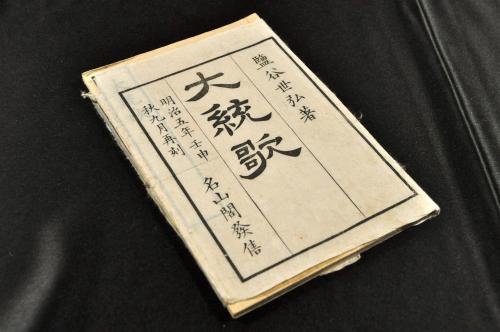 鹽谷世弘著
大統歌
明治五年壬申
秋九月再刻
名山閣發僖